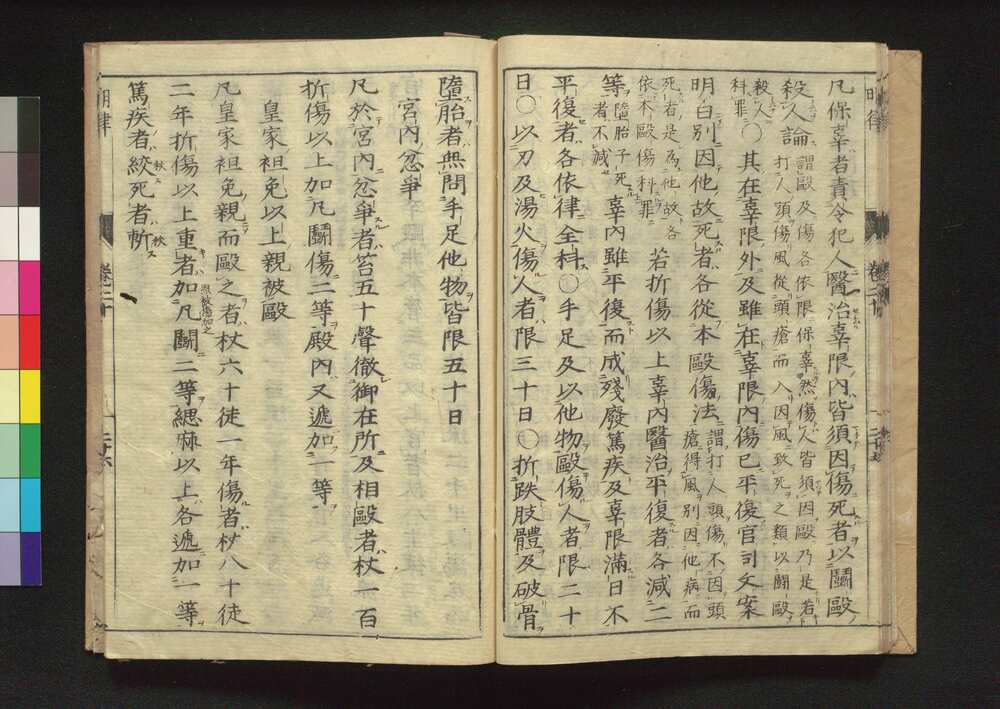 凡保辜者責令犯人醫治辜限內皆須因傷死者以鬬毆
殺人論謂毆及傷各依限保辜然傷人皆須因毆乃是若
打人頭傷風從頭瘡而入因風致死之類以鬬毆
殺人
科罪○其在辜限外及雖在辜限內傷已平復官司文案
明白別因他故死者各從本毆傷法謂打人頭傷不因頭
瘡得風別因他病而
死者是為他故各
依本毆傷科罪若折傷以上辜內醫治平復者各減二
等墮胎子死
者不減辜內雖平復而成殘廢篤疾及辜限滿日不
平復者各依律全科○手足及以他物毆傷人者限二十
日○以刃及湯火傷人者限三十日○折跌肢體及破骨
墮胎者無問手足他物皆限五十日
宮內忿爭
凡於宮內忿爭者笞五十聲徹御在所及相毆者杖一百
折傷以上加凡鬬傷二等殿內又遞加一等
皇家袒免以上親被毆
凡皇家袒免親而毆之者杖六十徒一年傷者杖八十徒
二年折傷以上重者加凡鬬二等緦麻以上各遞加一等
篤疾者絞死者斬
明律
卷二十